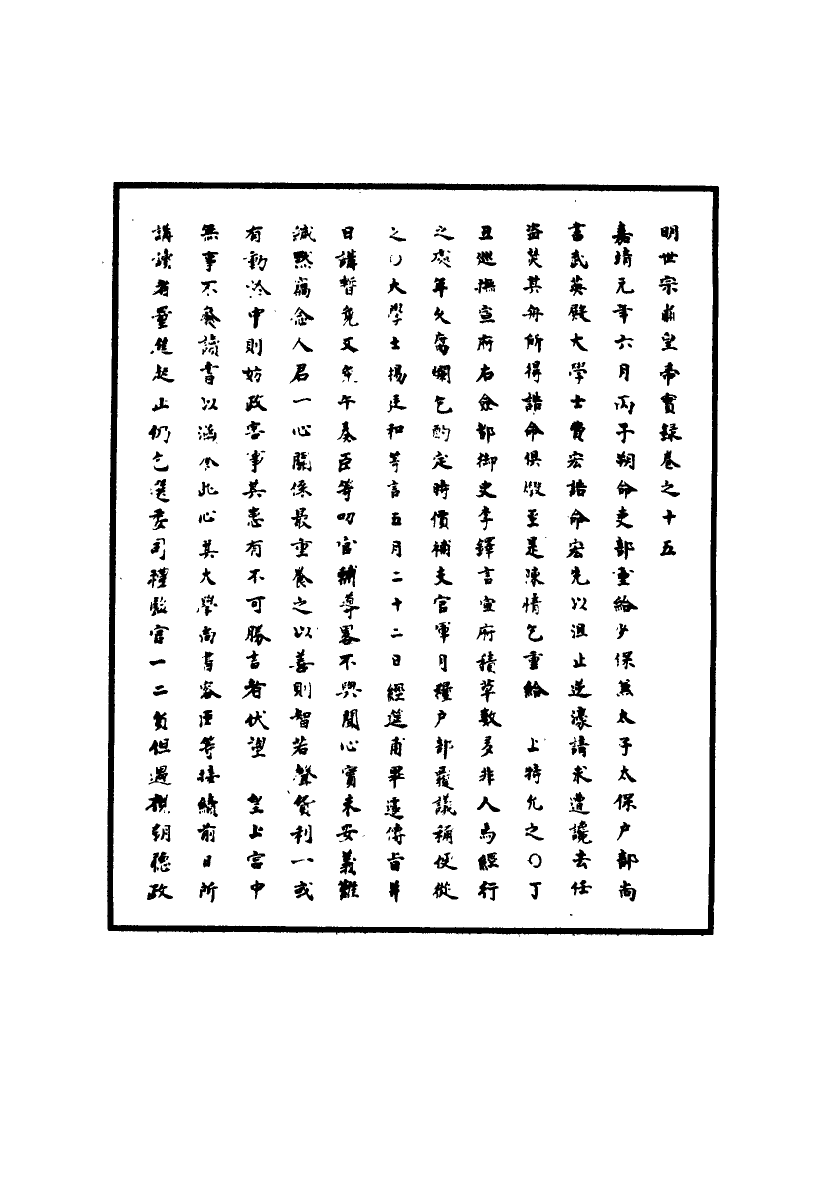 明世宗肅皇帝實録卷之十五
嘉靖元年六月丙子朔命吏部重給少保兼太子太保户部尚
書武英殿大學士費宏誥命宏先以沮止逆濠請求遭讒去任
盗焚其舟所得誥命俱燬至是陳情乞重給 上特允之○丁
丑巡撫宣府右僉都御史李鐸言宣府積草數多非人馬經行
之處年久腐爛乞酌定時價補支官軍月糧户部覆議稱便從
之○大學士楊廷和等言五月二十二日經筵甫畢遽傳旨并
日講暫免又免午奏臣等叨官輔導畧不與聞心實未安義難
緘黙竊念人君一心關係最重養之以善則智若聲貨利一或
有動於中則妨政害事其患有不可勝言者伏望 皇上宫中
無事不廢讀書以涵養此心其大學尚書容臣等接續前日所
講讀者量進起止仍乞選委司禮監官一二員但遇撰朝聽政